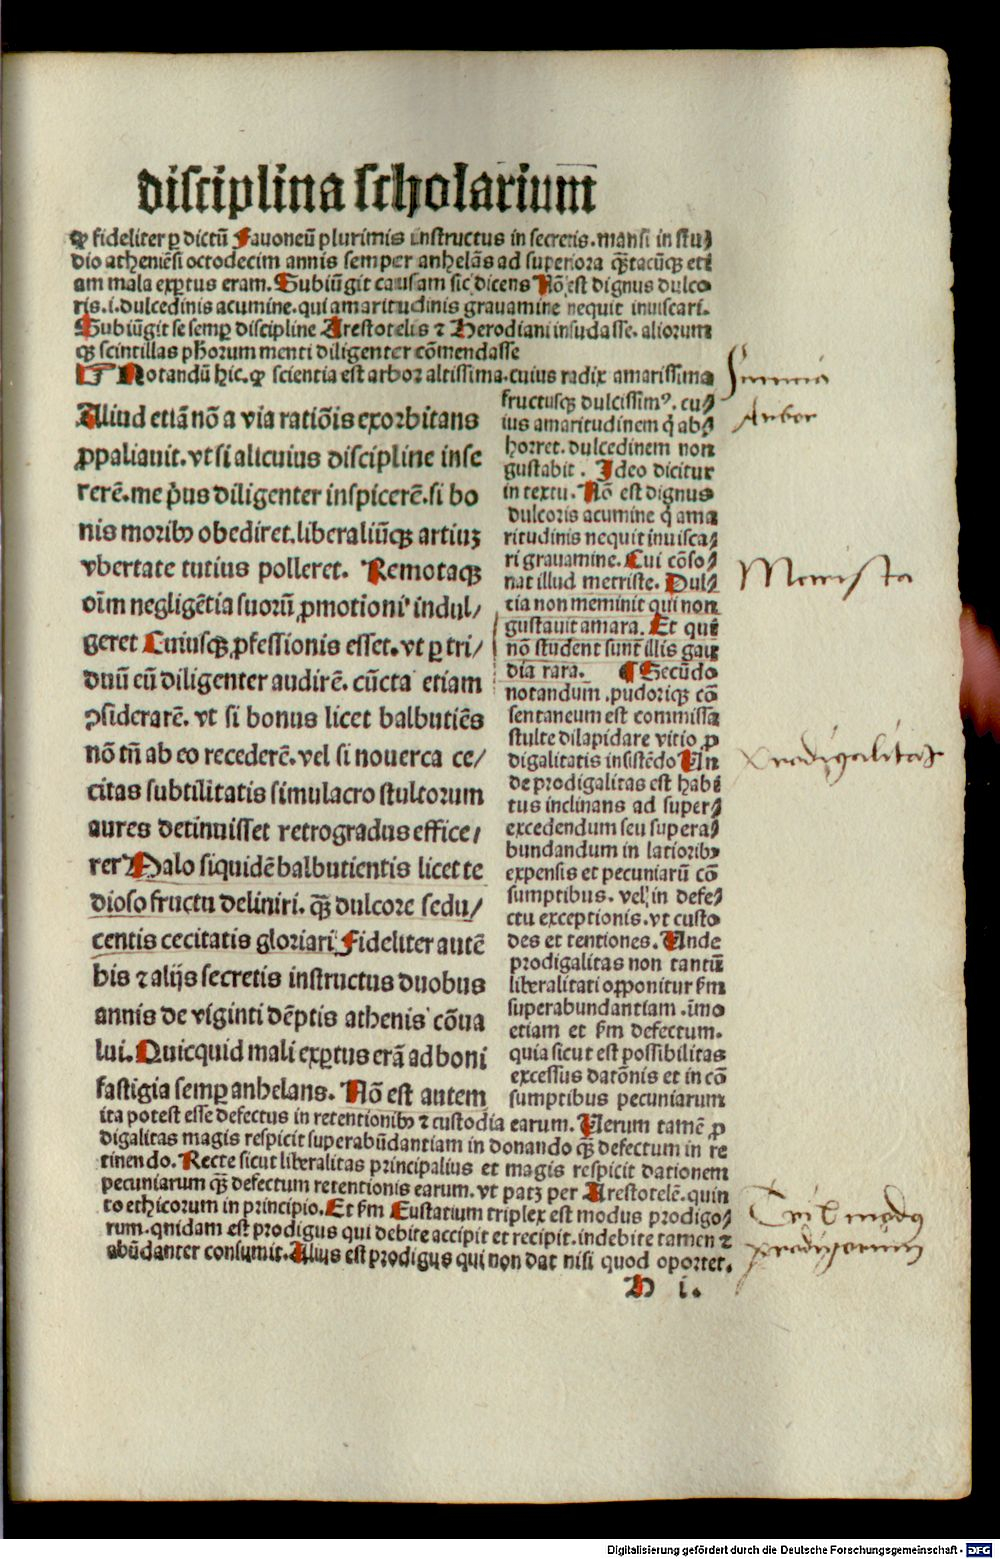 disciplina scholarium̅
ꝙ fideliter ꝑ dictū Fauoneū plurimis instructus in secretis. mansi in stu⸗
dio atheniēsi octodecim annis semper anhelās ad superiora qꝫtacūqꝫ eti
am mala exꝑtus eram. Subiūgit causam sic dicens Nō est dignus dulco
ris .i. dulcedinis acumine. qui amaritudinis grauamine nequit inuiscari.
Subiūgit se semꝑ discipline Arestotelis ⁊ Herodiani insudasse. aliorum
qꝫ scintillas ph̄orum menti diligenter cōmendasse
Notandū hic. ꝙ scientia est arbor altissima. cuius radix amarissima
fructusqꝫ dulcissimꝰ. cu⸗
ius amaritudinem q̇ ab⸗
horret. dulcedinem non
gustabit. Ideo dicitur
in textu. Nō est dignus
dulcoris acumine q̇ ama
ritudinis nequit inuisca⸗
ri grauamine. Cui cōso⸗
nat illud metriste. Dul⸗
cia non meminit qui non
gustauit amara. Et qui
nō student sunt illis gau
dia rara. ¶ Secūdo
notandum. pudoriqꝫ cō
sentaneum est commissa
stulte dilapidare vitio ꝓ
digalitatis insistēdo Un
de prodigalitas est habi
tus inclinans ad super⸗
excedendum seu supera⸗
bundandum in latioribꝰ
expensis et pecuniarū cō
sumptibus. vel in defe⸗
ctu exceptionis. vt custo
des et tentiones. Unde
prodigalitas non tantū
liberalitati opponitur ẜm
superabundantiam. īmo
etiam et ẜm defectum.
quia sicut est possibilitas
excessus datōnis et in cō
sumptibus pecuniarum
Aliud etiā nō a via ratiōis exorbitans
ꝓpaliauit. vt si alicuius discipline inse
rerē. me pͥus diligenter inspicerē. si bo
nis moribꝰ obediret. liberaliūqꝫ artiuꝫ
vbertate tutius polleret. Remotaqꝫ
oīm negligētia suorū ꝓmotioni indul⸗
geret Cuiusqꝫ ꝓfessionis esset. vt ꝑ tri⸗
duū eū diligenter audirē. cūcta etiam
ꝯsiderarē. vt si bonus licet balbutiēs
nō tn̄ ab eo recederē. vel si nouerca ce⸗
citas subtilitatis simulacro stultorum
aures detinuisset retrogradus effice⸗
rer Malo siquidē balbutientis licet te
dioso fructu deliniri. qꝫ dulcore sedu⸗
centis cecitatis gloriari Fideliter autē
his ⁊ alijs secretis instructus duobus
annis de viginti dēptis athenis cōua
lui. Quicquid mali exꝑtus erā ad boni
fastigia semꝑ anhelans. Nō est autem
ita potest esse defectus in retentionibꝰ ⁊ custodia earum. Verum tamē ꝓ
digalitas magis respicit superabūdantiam in donando qꝫ defectum in re
tinendo. Recte sicut liberalitas principalius et magis respicit dationem
pecuniarum qꝫ defectum retentionis earum. vt patꝫ per Arestotelē. quin
to ethicorum in principio. Et ẜm Eustatium triplex est modus prodigo⸗
rum. quidam est prodigus qui debite accipit et recipit. indebite tamen ⁊
abūdanter consumit. Alius est prodigus qui non dat nisi quod oportet.
H i.
Arbor
Metrista
prodigalitas
prodigorum
Digitalisierung gefördert durch die Deutsche Forschungsgemeinschaft - DFG